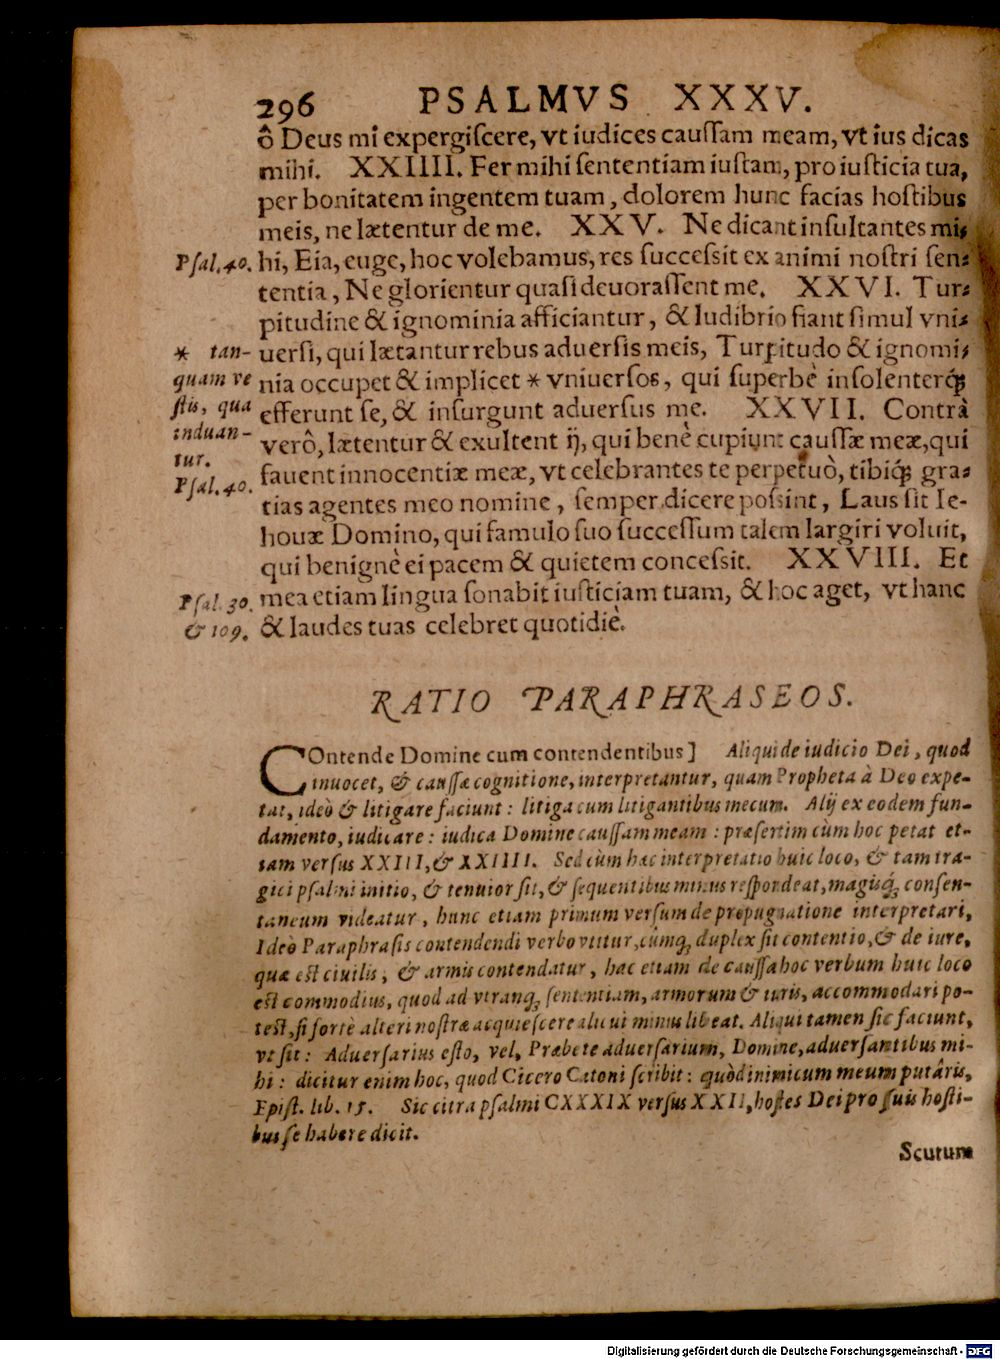 296 PSALMVS XXXV.
ô Deus mî expergiſcere, vt iudices cauſſam meam, vt îus dicas
mihi. XXIIII. Fer mihi ſententiam iuſtam, pro iuſticia tua,
per bonitatem ingentem tuam, dolorem hunc facias hoſtibus
meis, ne lætentur de me. XXV. Ne dicant inſultantes mi-
Pſal. 40. hi, Eia, euge, hoc volebamus, res ſucceſsit ex animi noſtri ſen-
tentia, Ne glorientur quaſi deuoraſſent me. XXVI. Tur-
pitudine & ignominia afficiantur, & ludibrio fiant ſimul vni-
* tan- uerſi, qui lætantur rebus aduerſis meis, Turpitudo & ignomi-
quam ve nia occupet & implicet * vniuerſos, qui ſuperbè inſolenterq́;
ſtis, qua efferunt ſe, & inſurgunt aduerſus me. XXVII. Contrà
induan- verô, lætentur & exultent ij, qui benè cupiunt cauſſæ meæ, qui
tur. fauent innocentiæ meæ, vt celebrantes te perpetuò, tibiq́; gra-
Pſal. 40. tias agentes meo nomine, ſemper dicere poſsint, Laus ſit Ie-
houæ Domino, qui famulo ſuo ſucceſſum talem largiri voluit,
qui benignè ei pacem & quietem conceſsit. XXVIII. Et
Pſal. 30. mea etiam lingua ſonabit iuſticiam tuam, & hoc aget, vt hanc
& 109. & laudes tuas celebret quotidiè.
RATIO PARAPHRASEOS.
COntende Domine cum contendentibus] Aliqui de iudicio Dei, quod
inuocet, & cauſſæ cognitione, interpretantur, quam Propheta à Deo expe-
tat, ideò & litigare faciunt: litiga cum litigantibus mecum. Alij ex eodem fun-
damento, iudicare: iudica Domine cauſſam meam: præſertim cùm hoc petat et-
iam verſus XXIII, & XXIIII. Sed cùm hæc interpretatio huic loco, & tam tra-
gici pſalmi initio, & tenuior ſit, & ſequentibus minus reſpondeat, magisq́; conſen-
taneum videatur, hunc etiam primum verſum de propugnatione interpretari,
Ideò Paraphraſis contendendi verbo vtitur, cùmq́; duplex ſit contentio, & de iure,
quæ eſt ciuilis, & armis contendatur, hac etiam de cauſſa hoc verbum huic loco
eſt commodius, quod ad vtranq́; ſententiam, armorum & iuris, accommodari po-
teſt, ſi fortè alteri noſtræ acquieſcere alicui minus libeat. Aliqui tamen ſic faciunt,
vt ſit: Aduerſarius eſto, vel, Præbe te aduerſarium, Domine, aduerſantibus mi-
hi: dicitur enim hoc, quod Cicero Catoni ſcribit: quòd inimicum meum putâris,
Epiſt. lib. 15. Sic citra pſalmi CXXXIX verſus XXII, hoſtes Dei pro ſuis hoſti-
bus ſe habere dicit.
Scutum
Digitalisierung gefördert durch die Deutsche Forschungsgemeinschaft - DFG